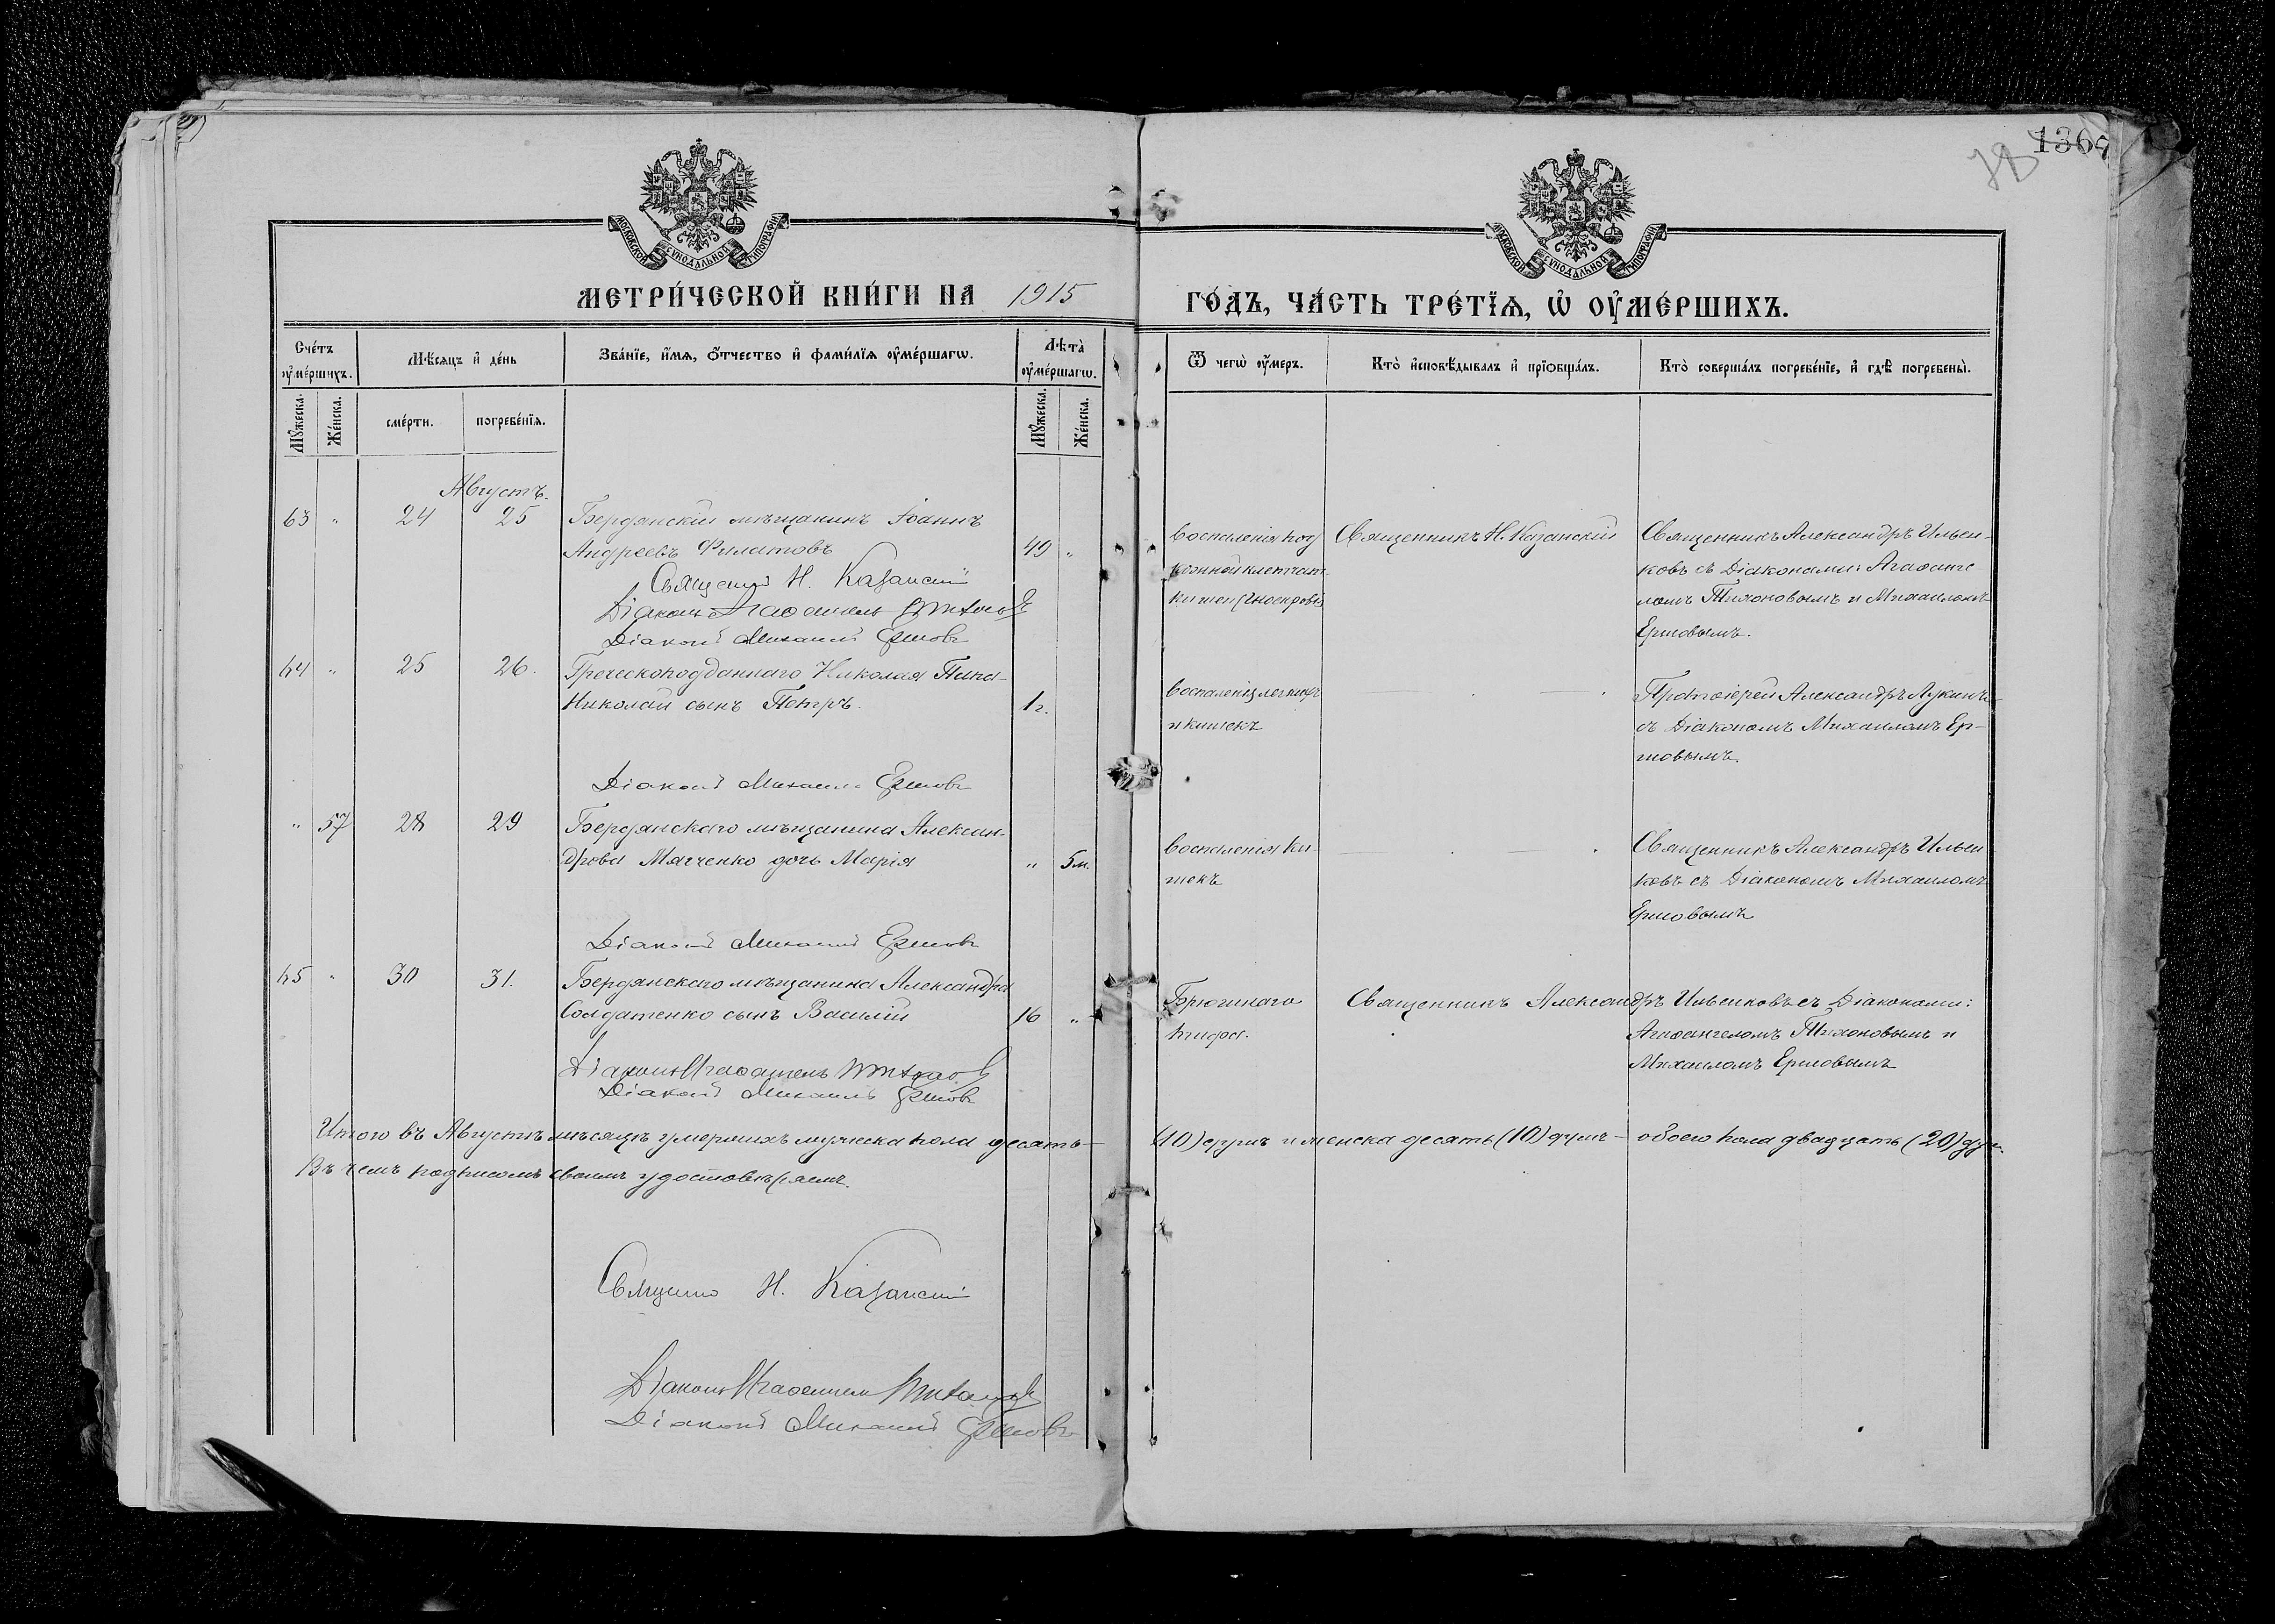 1367
78
МОСКОВСКОЙ СѴНОДАЛЬНОЙ ТИПОГРАФІИ
МОСКОВСКОЙ СѴНОДАЛЬНОЙ ТИПОГРАФІИ
МЕТРИ́ЧЕСКОЙ КНИ́ГИ НА 1915
ГО́ДЪ, ЧА́СТЬ ТРЕ́ТІѦ, Ѡ҆ ОУ҆МЕ́РШИХЪ.
Сче́тъ оу҆ме́ршихъ.
Мѣ́сяцъ и҆ де́нь
Зва́нїе, и҆́мѧ, ѻ҆́тчество и҆ фами́лїѧ оу҆ме́ршагѡ.
Лѣта̀ оу҆ме́ршагѡ.
Ѿ чегѡ̀ оу҆́меръ.
Кто̀ и҆сповѣ́дывалъ и҆ прїѡбща́лъ.
Кто̀ соверша́лъ погребе́нїе, и҆ гдѣ̀ погребены̀.
Мꙋ́жеска. Же́нска.
сме́рти. погребе́нїѧ.
Мꙋ́жеска. Же́нска.
Августъ.
63 " 24 25 Бердянскій мѣщанинъ Іоаннъ
Андреевъ Филатовъ 49 "
Священникъ Н. Казанскій
Діаконъ Агаѳангелъ Тихоновъ
Діаконъ Михаилъ Ершовъ
воспаленія под
кожной клетчат.
Священникъ Н. Казанскій
Священникъ Александръ Ильен-
ковъ съ Діаконами: Агаѳанге
ломъ Тихоновымъ и Михаиломъ
Ершовымъ.
64 " 25 26. Греческоподданнаго Николая
Николаи сынъ Петръ. 1 г.
Діаконъ Михаилъ Ершовъ
воспаленія легкихъ
и кишекъ
Протоіерей Александръ
съ Діакономъ Михаиломъ Ер-
шовымъ.
" 57 28 29 Бердянскаго мѣщанина Алексан-
дрова Мягченко дочь Марія " 5 м.
Діаконъ Михаилъ Ершовъ
воспаленія ки-
шекъ
Священникъ Александръ Ильен
ковъ съ Діакономъ Михаиломъ
Ершовымъ
65 " 30 31. Бердянскаго мѣщанина Александра
Солдатенко сынъ Василій 16 "
Діаконъ Агаѳангелъ Тихоновъ
Діаконъ Михаилъ Ершовъ
Брюшнаго
тифа.
Священникъ Александръ Ильенковъ съ Діаконами:
Агаѳангеломъ Тихоновымъ и
Михаиломъ Ершовымъ
Итого въ Августѣ мѣсяцѣ умершихъ мужеска пола десять – (10) душъ и женска десять (10) душъ – обоего пола двадцать (20) душ.
Въ чемъ подписомъ своимъ удостовѣряемъ.
Священникъ Н. Казанскій
Діаконъ Агаѳангелъ Тихоновъ
Діаконъ Михаилъ Ершовъ